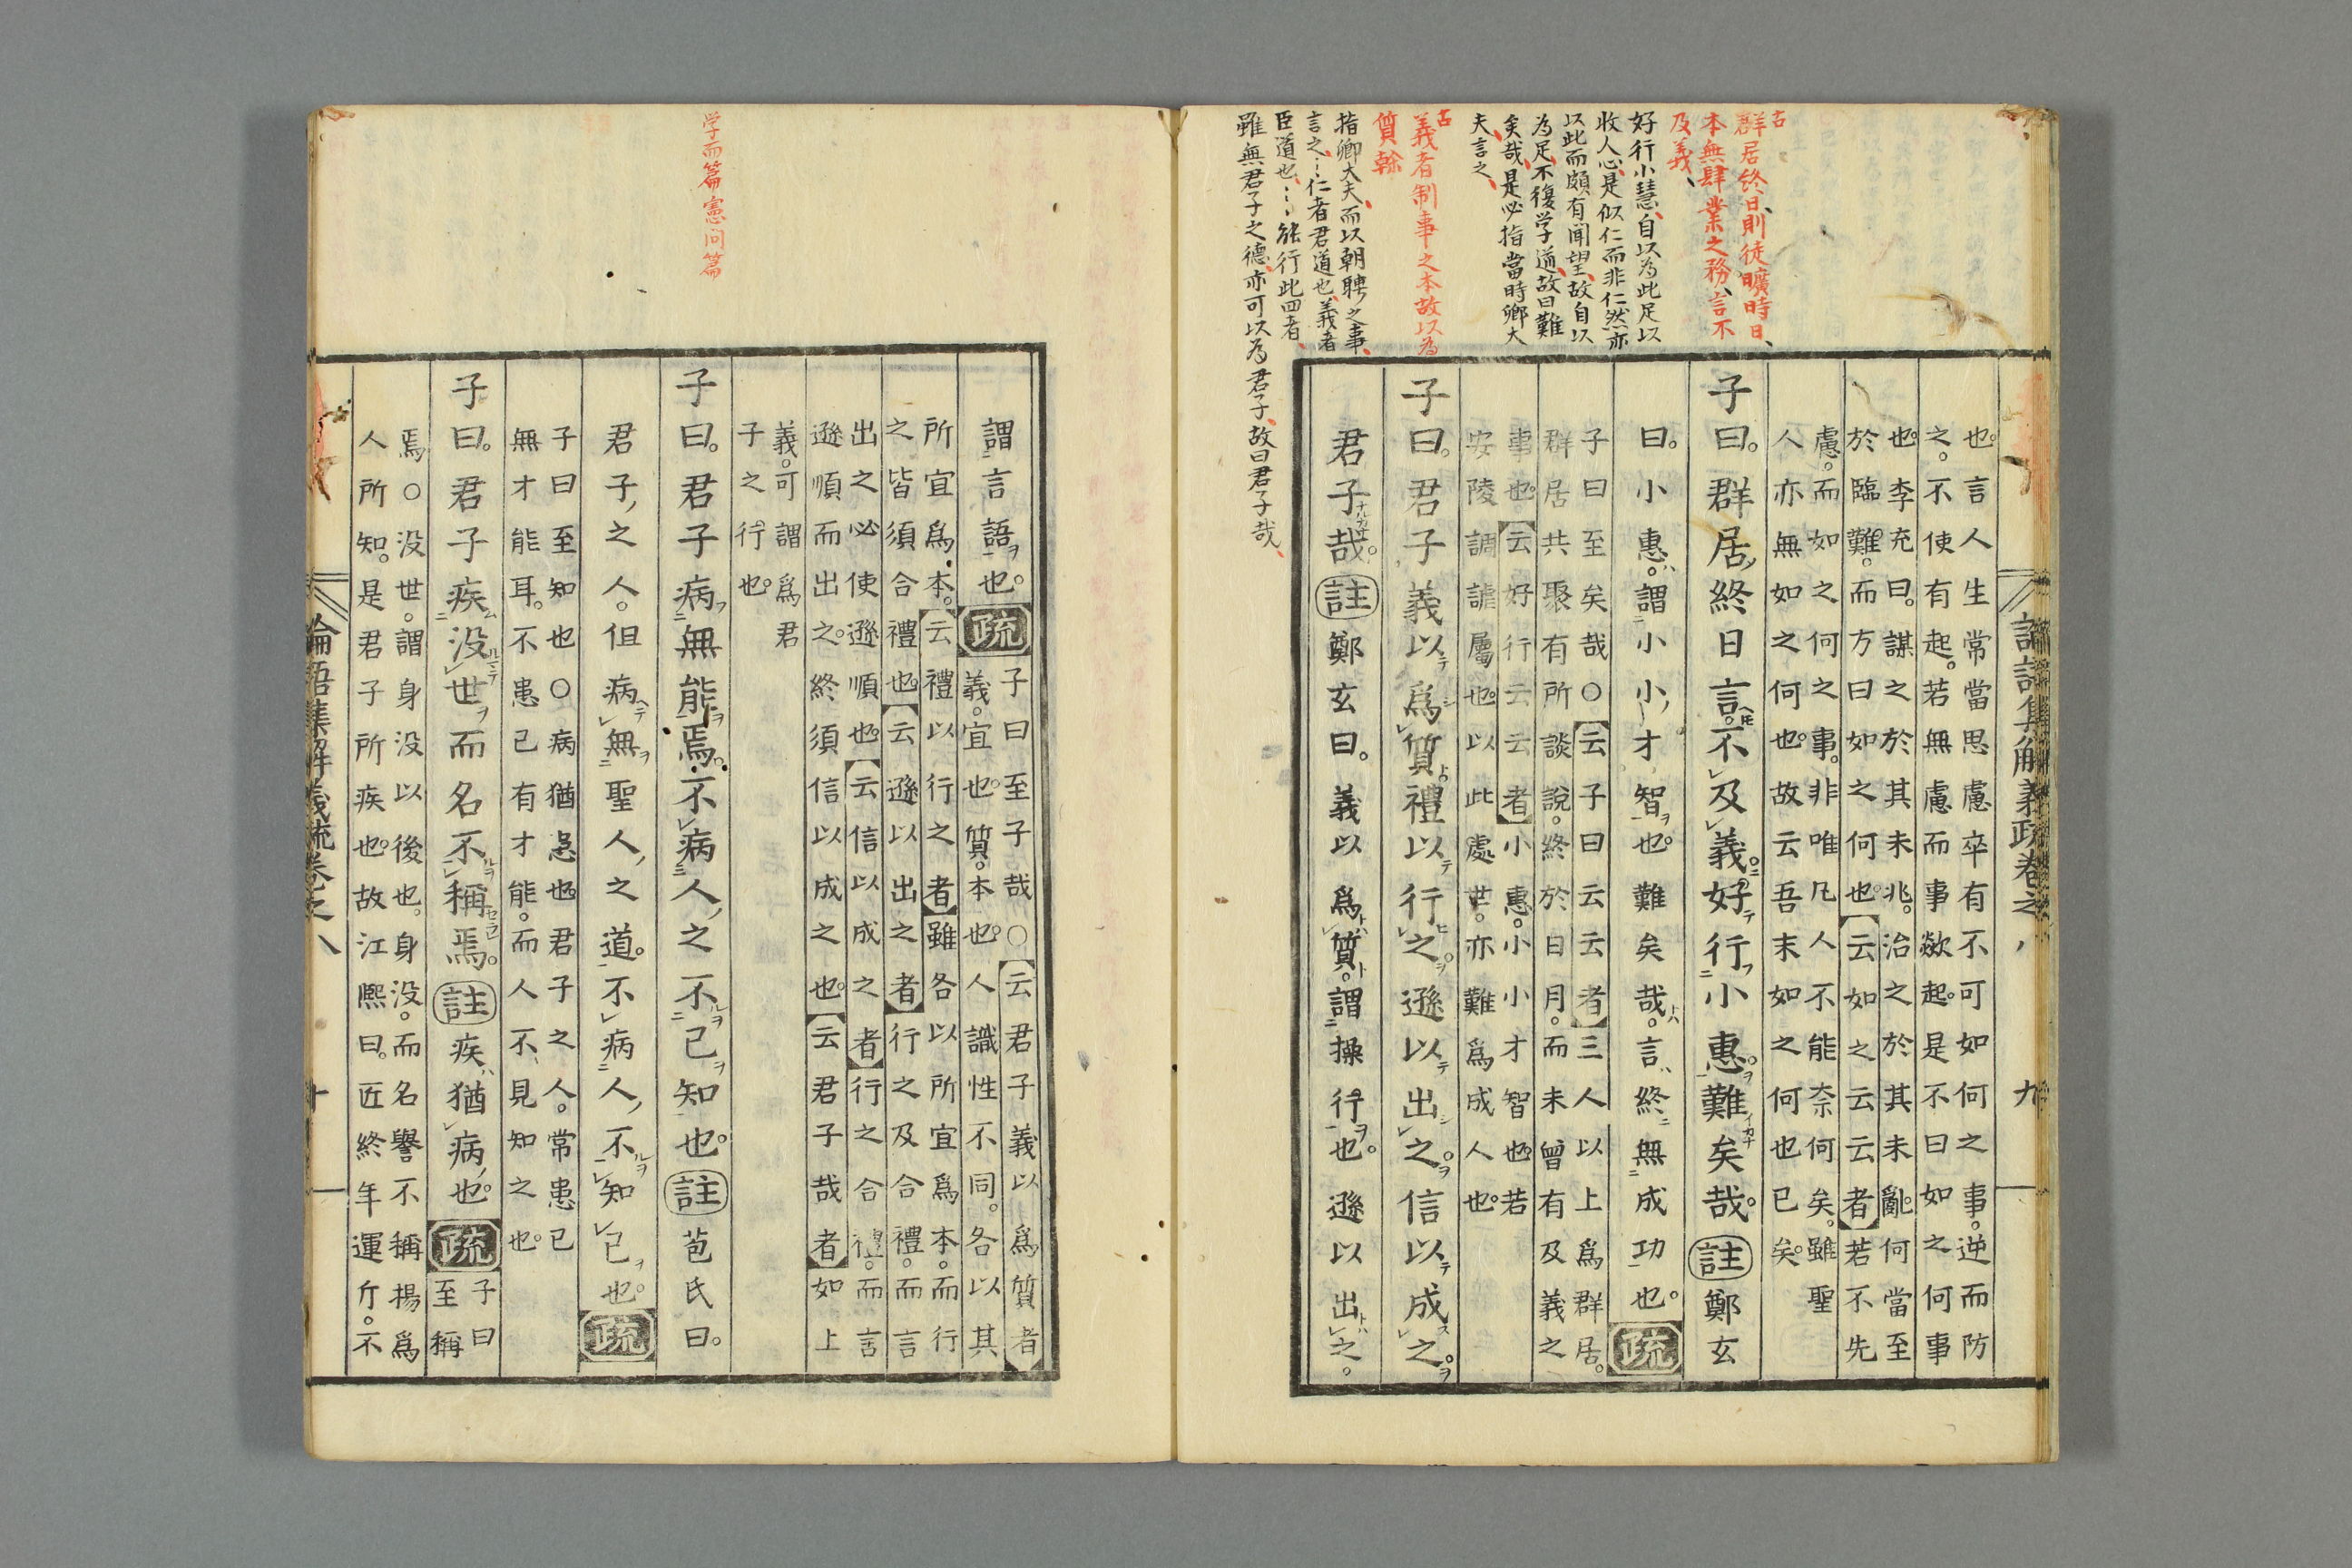 古
群居終日則徒曠時日、
本無肆業之務、言不
及義、
好行小慧、自以為此足以
收人心、是似仁而非仁然亦
以此而頗有聞望、故自以
為足、不復学道、故曰難
矣哉、是必指當時鄉大
夫言之、
古
義者制事之本故以為
質幹
指卿大夫、而以朝聘之事、
言之、…仁者君道也、義者
臣道也、…能行此四者、
雖無君子之德、亦可以為君子、故曰君子哉、
論語集解義疏卷之八 九
也。言人生常當思慮卒有不可如何之事。逆而防
之。不使有起。若無慮而事歘起。是不曰如之何事
也。李充曰。謀之於其未兆。治之於其未亂。何當至
於臨難。而方曰如之何也。云如之云云者若不先
慮。而如之何之事。非唯凡人不能奈何矣。雖聖
人亦無如之何也。故云吾末如之何也已矣。
子曰。群居終日言。不及義。好行小惠。難矣哉。註鄭玄
曰。小惠。謂小小才智也。難矣哉。言終無成功也。疏
子曰至矣哉○云子曰云云者三人以上爲群居。
群居共聚有所談說。終於日月。而未曾有及義之
事也。云好行云云者小惠。小小才智也。若
安陵調謔屬也。以此處世。亦難爲成人也。
子曰。君子義以爲質。禮以行之。遜以出之。信以成之。
君子哉。註鄭玄曰。義以爲質。謂操行也。遜以出之。
謂言語也。疏
子曰至子哉○云君子義以爲質者
義。宜也。質。本也。人識性不同。各以其
所宜爲本。云禮以行之者雖各以所宜爲本。而行
之皆須合禮也。云遜以出之者行之及合禮。而言
出之必使遜順也。云信以成之者行之合禮。而言
遜順而出之。終須信以成之也。云君子哉者如上
義。可謂爲君
子之行也。
子曰。君子病無能焉。不病人之不己知也。註苞氏曰。
君子之人。但病無聖人之道。不病人不知己也。疏
子曰至知也○病猶患也。君子之人。常患己
無才能耳。不患己有才能。而人不見知之也。
子曰。君子疾没世而名不稱焉。註疾猶病也。疏
子曰
至稱
焉○没世。謂身没以後也。身没。而名譽不稱揚爲
人所知。是君子所疾也。故江熙曰。匠終年運斤。不
論語集解義疏卷之八 十
学而篇憲问篇